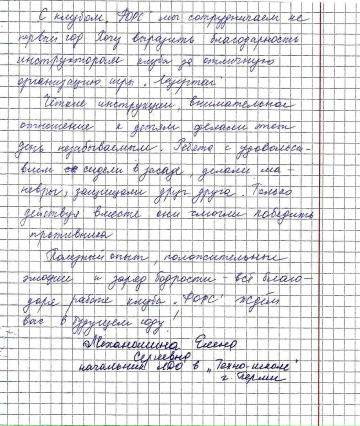 С клубом "ФОРС" мы сотрудничаем не
первый год. Хочу выразить благодарность
инструкторам клуба за отличную
организацию игры "Лазертаг"
Четкие инструкции, внимательное
отношение к детям делали этот
день незабываемым. Ребята с удовольст-
вием сидели в засаде, делали ма-
невры, защищали друг друга. Только
действуя вместе они смогли победить
противника
Полезный опыт, положительные
эмоции и заряд бодрости - всё благо-
даря работе клуба "ФОРС". Ждём
вас в будущем году!
Механошина Елена
Сергеевна
начальник ЛДО в "Техно-школе"
г. Перми